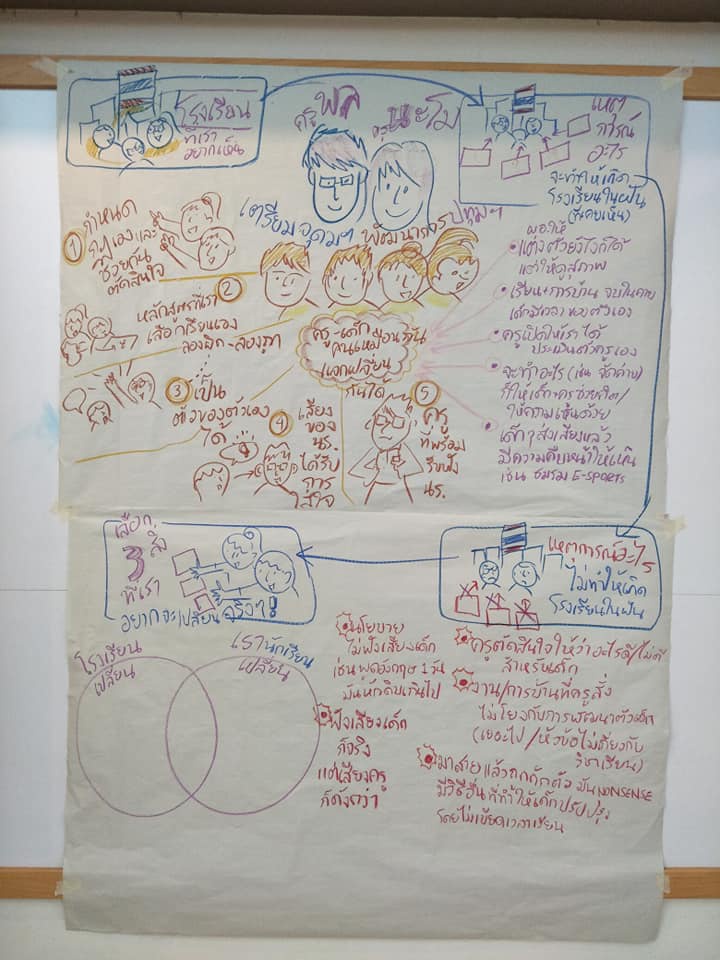 โรงเรียน
ที่เรา
อยากเห็น
ครูพล
ครูนะโม
เหตุ
การณ์
อะไร
จะทำให้เกิด
โรงเรียนในฝัน
(ที่เคยเห็น)
เตรียมอุดมฯ พัฒนาการ ปทุมฯ
① กำหนด
กฎเองและ
ช่วยกัน
ตัดสินใจ
② หลักสูตรที่เรา
เลือกเรียนเอง
ลองผิด-ลองถูก
③ เป็น
ตัวของตัวเอง
ได้
④ เสียง
ของ
นร.
ได้รับ
การ
ใส่ใจ
⑤ ครู
ที่พร้อม
รับฟัง
นร.
ครู-เด็ก
แลกเปลี่ยน
กันได้
ผอ.ให้
แต่งตัวยังไงก็ได้
แต่ให้ดูสุภาพ
เรียน+การบ้าน จบในคาบ
เด็กมีเวลาของตัวเอง
ครูเปิดให้เราได้
ประเมินตัวครูเอง
จะทำอะไร (เช่น
ก็ให้เด็ก+ครูช่วยคิด/
ให้ความเห็นด้วย
เด็กๆ ส่งเสียงแล้ว
มีความคืบหน้าให้เห็น
เช่น ชมรม E-SPORTS
เลือก
3 สิ่ง
ที่เรา
อยากจะเปลี่ยนจริงๆ!
เหตุการณ์อะไร
ไม่ทำให้เกิด
โรงเรียนในฝัน
โรงเรียน
เปลี่ยน
เรานักเรียน
เปลี่ยน
นโยบาย
ไม่ฟังเสียงเด็ก
เช่นพูดอังกฤษ 1 วัน
มันหักดิบเกินไป
ฟังเสียงเด็ก
ก็จริง
แต่เสียงครู
ก็ดังกว่า
ครูตัดสินใจให้ว่าอะไรดี/ไม่ดี
สำหรับเด็ก
งาน/การบ้านที่ครูสั่ง
ไม่โยงกับการพัฒนาตัวเด็ก
(เยอะไป/หัวข้อไม่เกี่ยวกับ
วิชาเรียน)
มาสายแล้วถูกกักตัว มัน NONSENSE
มีวิธีอื่นที่ทำให้เด็กปรับปรุง
โดยไม่เบียดเวลาเรียน